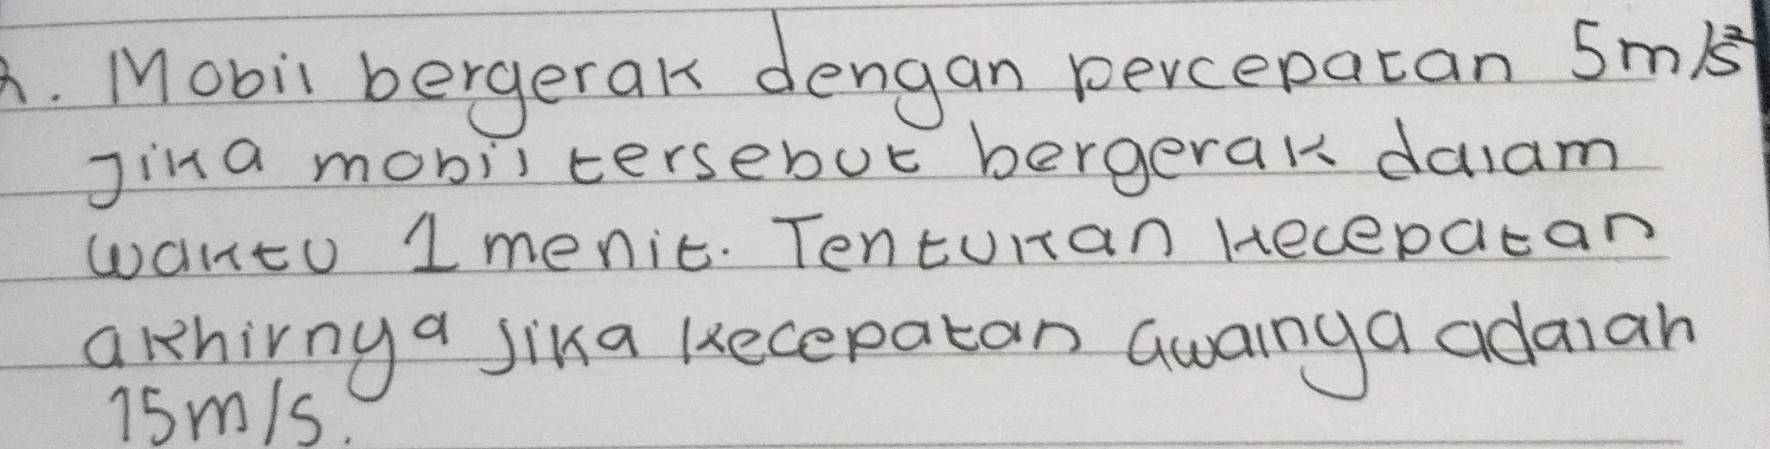 Mobil bergerak dengan percepatan 5m/s²
Jika mobil tersebut bergerak dalam
waktu 1 menit. Tentukan kecepatan
akhirnya jika kecepatan awalnya adalah
15m/s.